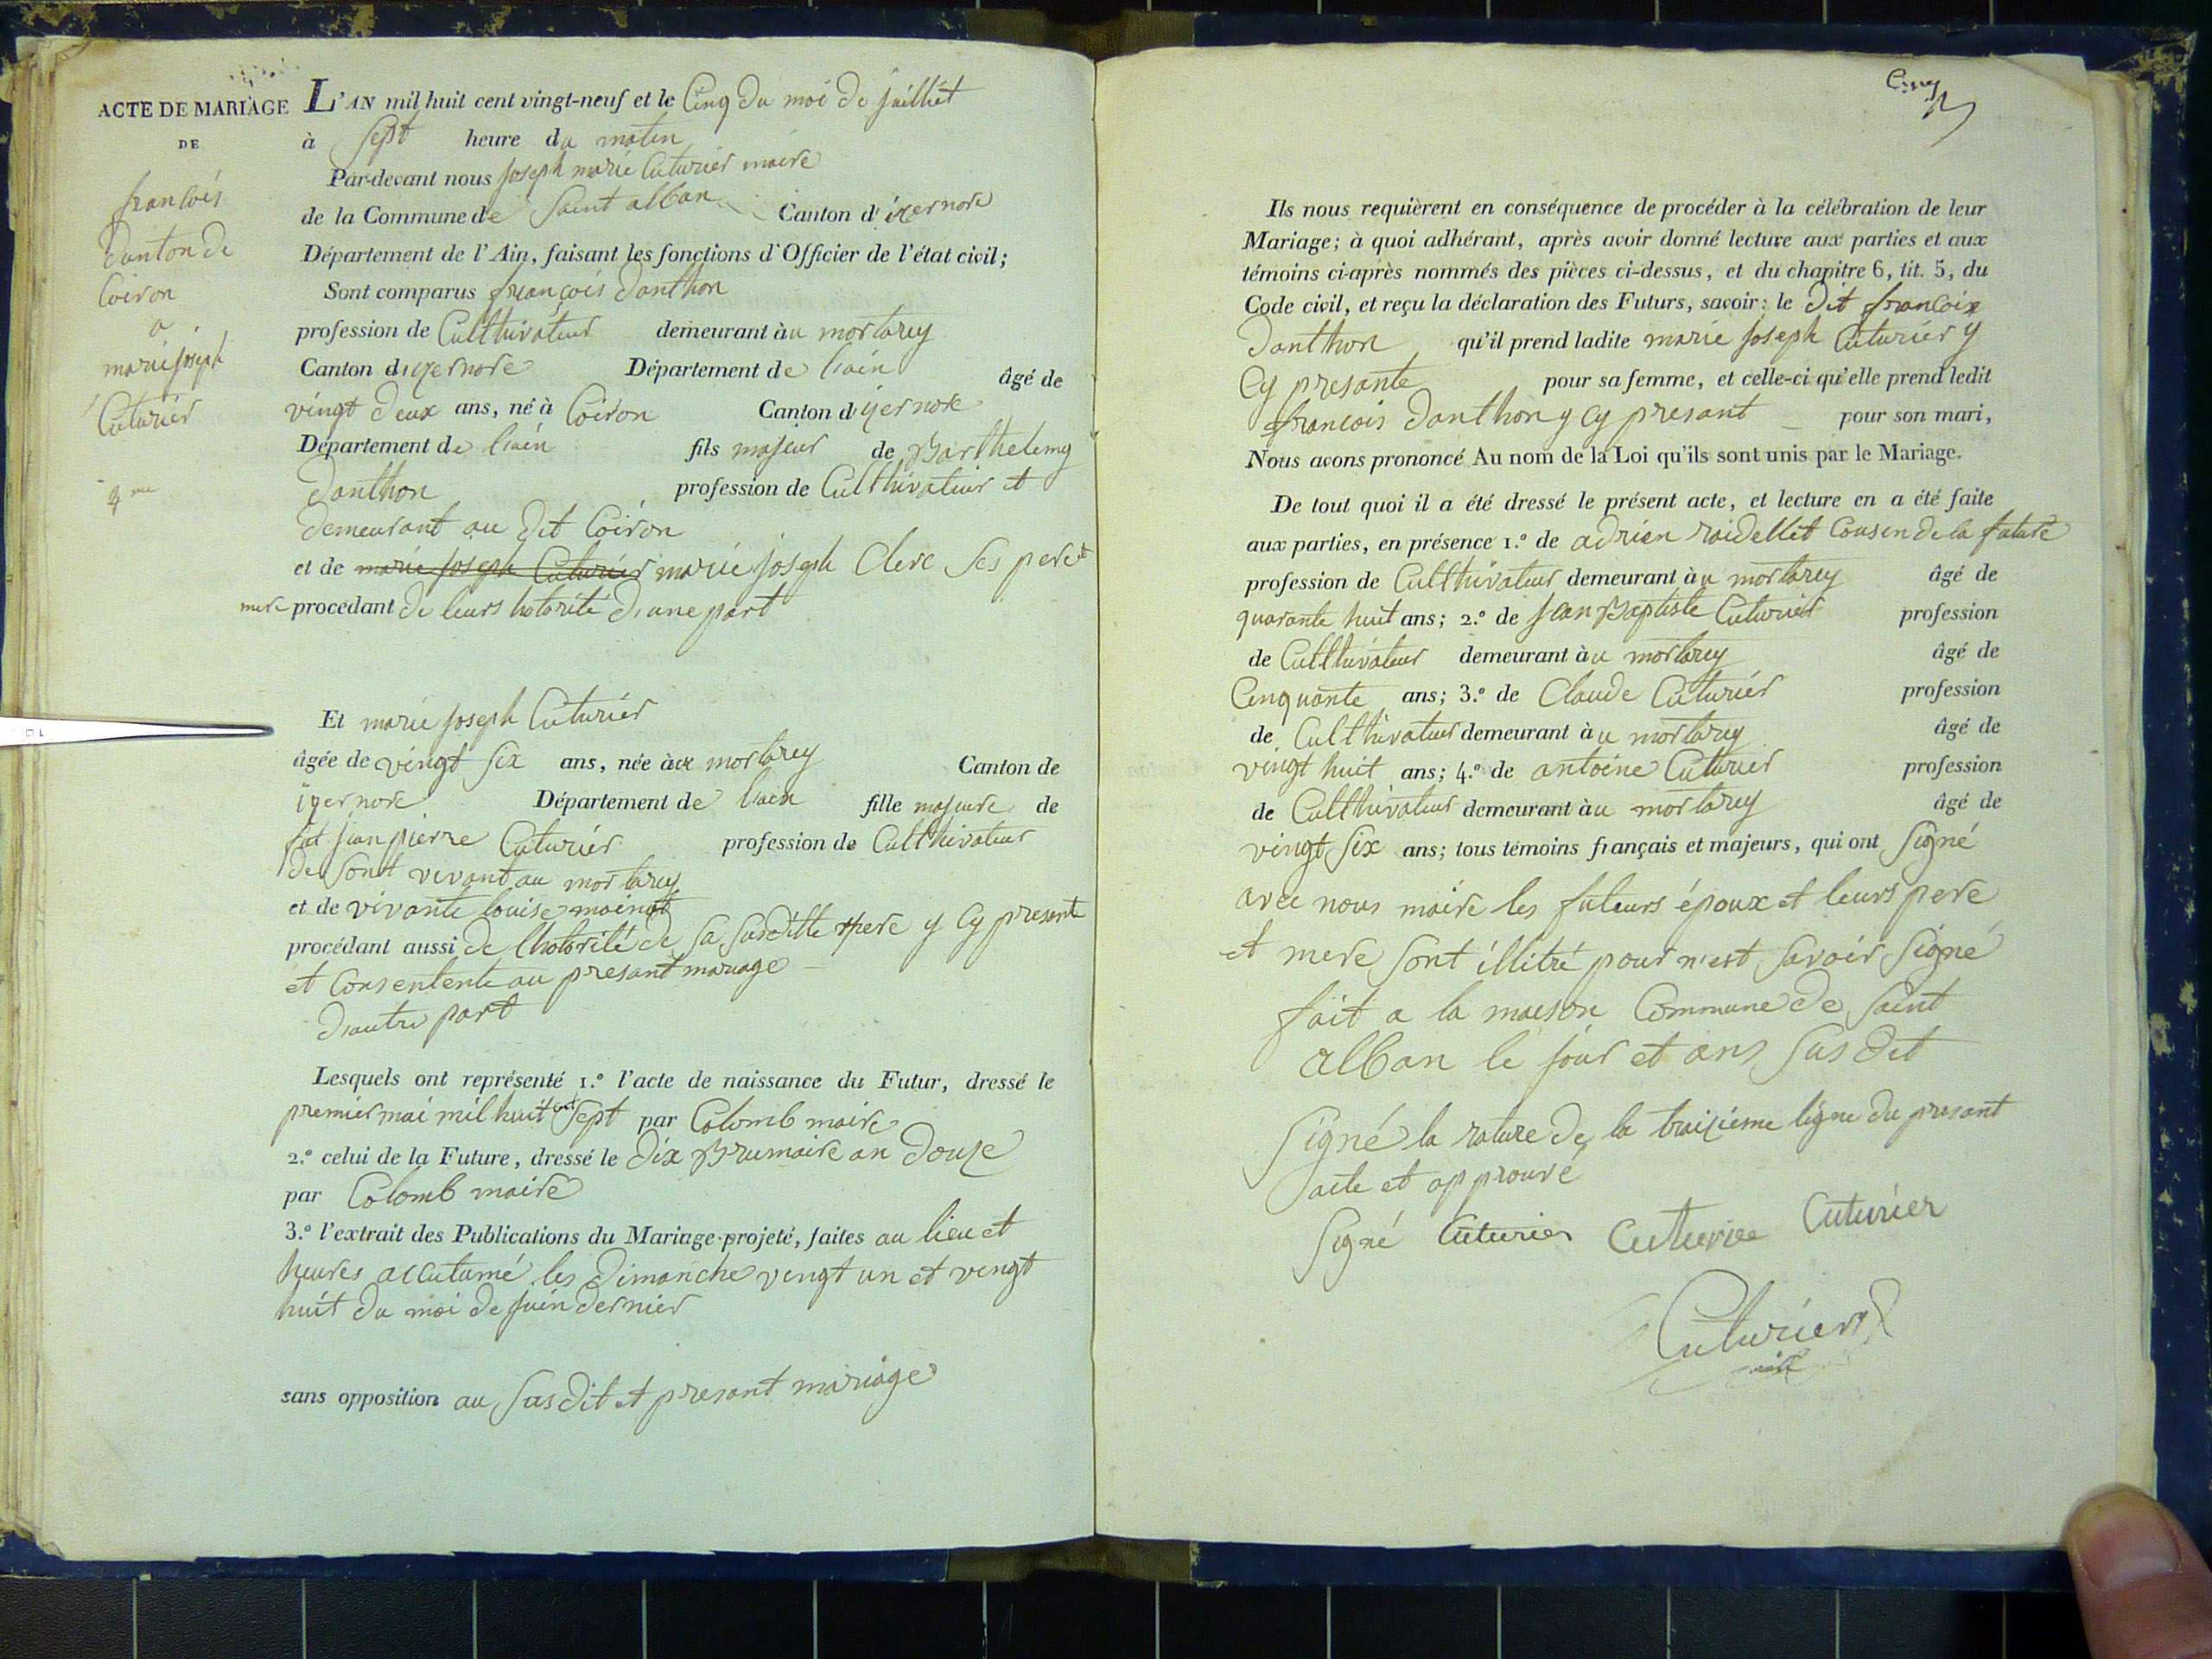 ACTE DE MARIAGE
DE
francois
danton de
Coiron
a
marie joseph
Cuturier
4me
L'AN mil huit cent vingt-neuf et le Cinq du moi de juilliet
à sept heure du matin
Par-devant nous joseph marie Cuturier maire
de la Commune de Saint alban Canton d'izernore
Département de l'Ain, faisant les fonctions d'Officier de l'état civil;
Sont comparus françois danthon
profession de Cultthivateur demeurant àu mortarey
Canton dizernore Département de l'ain âgé de
vingt deux ans, né à Coiron Canton d'izernore
Département de l'ain fils majeur de Barthelemy
danthon profession de Cultthivateur et
demeurant au dit Coiron
et de marie joseph Cuturier marie joseph Clerc ses pere et
mere procédant de leurs hotorité d'une part
Et marie joseph Cuturier
âgée de vingt six ans, née àu mortarey Canton de
izernore Département de l'ain fille majeure de
fut jean pierre Cuturier profession de Cultthivateur
de sont vivant au mortarey
et de vivante louise moinat
procédant aussi de lhotorité de sa susditte mere y cy presente
et consentente au presant mariage
d'autre part
Lesquels ont représenté 1.º l'acte de naissance du Futur, dressé le
premier mai mil huit cent sept par Colomb maire
2.º celui de la Future, dressé le dix Brumaire an douze
par Colomb maire
3.º l'extrait des Publications du Mariage projeté, faites au lieu et
heures accutumé les dimanche vingt un et vingt
huit du moi de juin dernier
sans opposition au susdit et presant mariage
Cinq
Ils nous requièrent en conséquence de procéder à la célébration de leur
Mariage; à quoi adhérant, après avoir donné lecture aux parties et aux
témoins ci-après nommés des pièces ci-dessus, et du chapitre 6, tit. 5, du
Code civil, et reçu la déclaration des Futurs, savoir: le dit francois
danthon qu'il prend ladite marie joseph Cuturier y
Cy presante pour sa femme, et celle-ci qu'elle prend ledit
francois danthon y cy presant pour son mari,
Nous avons prononcé Au nom de la Loi qu'ils sont unis par le Mariage.
De tout quoi il a été dressé le présent acte, et lecture en a été faite
aux parties, en présence 1.º de adrien raidellet Cousin de la future
profession de Cultthivateur demeurant àu mortarey âgé de
quarante huit ans; 2.º de jean Baptiste Cuturier profession
de Cultthivateur demeurant àu mortarey âgé de
Cinquante ans; 3.º de Claude Cuturier profession
de Cultthivateur demeurant àu mortarey âgé de
vingt huit ans; 4.º de antoine Cuturier profession
de Cultthivateur demeurant àu mortarey âgé de
vingt six ans; tous témoins français et majeurs, qui ont signé
avec nous maire les futeurs époux et leurs pere
et mere sont illitré pour n'est savoir signé
fait a la maison Commune de saint
alban le jour et ans susdit
signé la rature de la traizieme ligne du presant
acte et approuvé
signé Cuturier Cuturier Cuturier
Cuturier